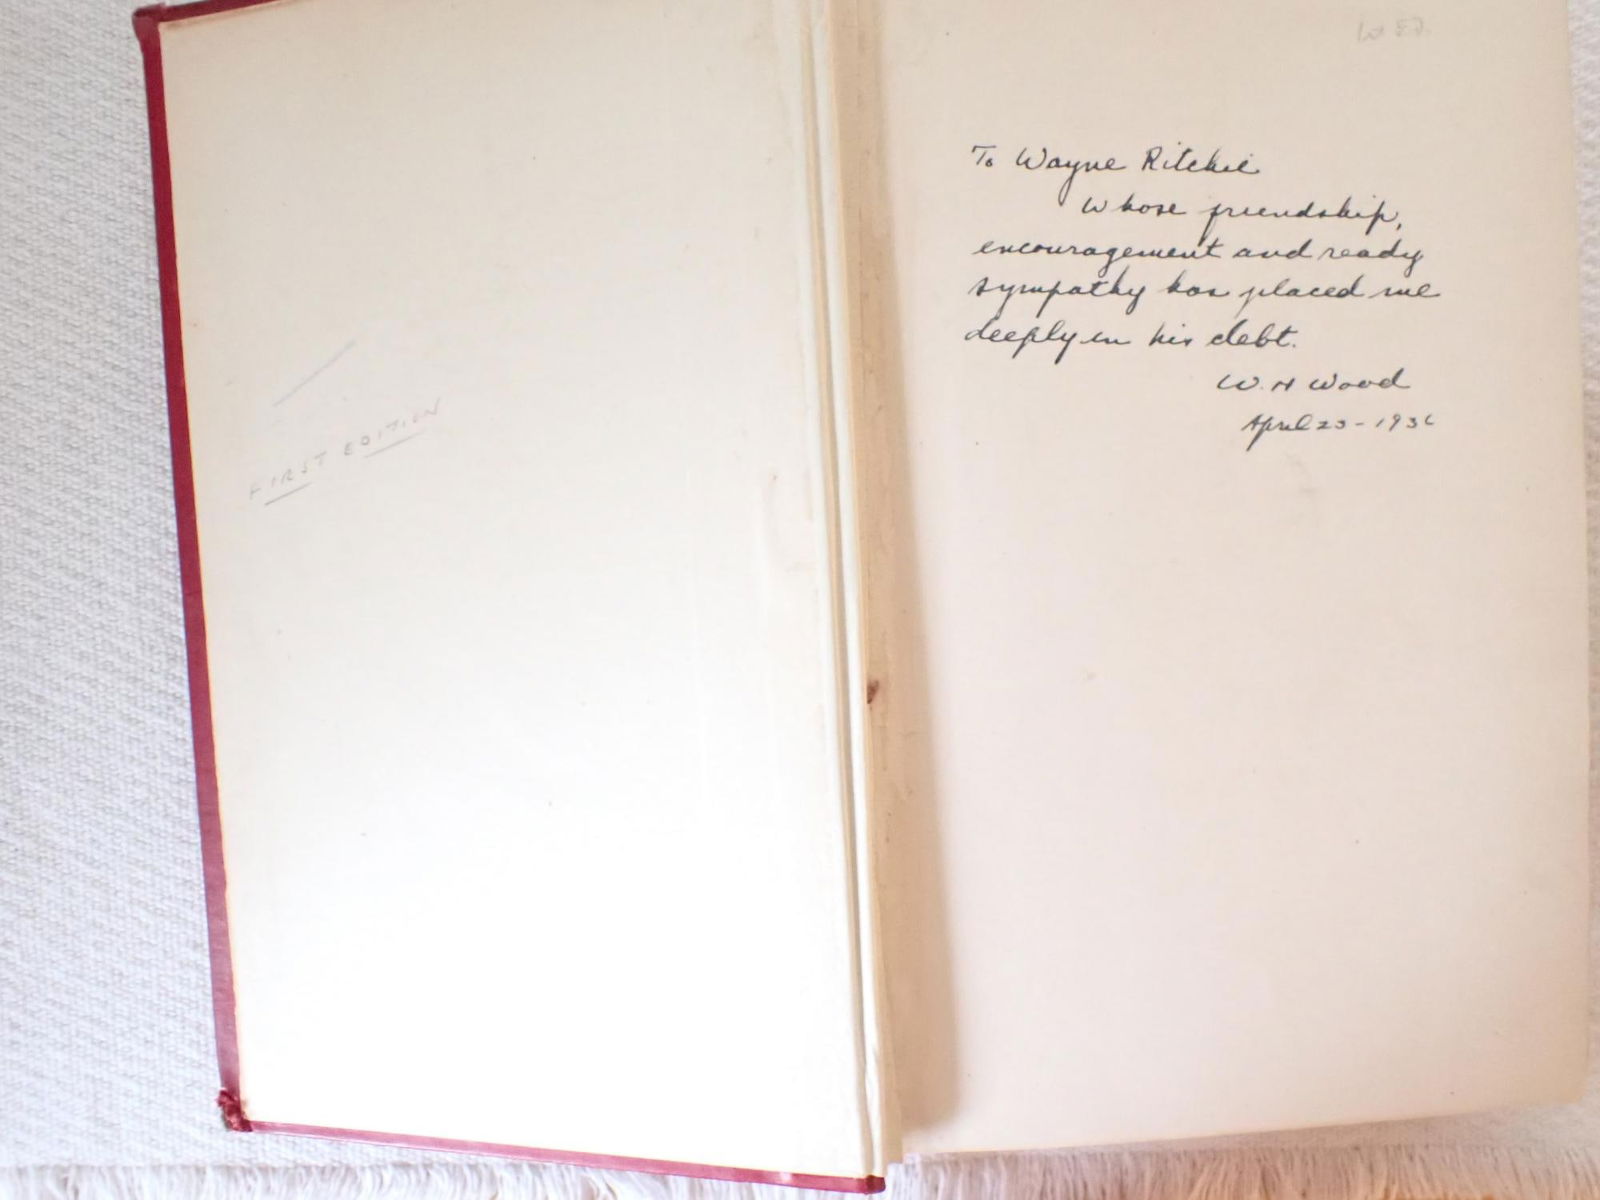 FIRST EDITION
To Wayne Ritchie
Whose friendship,
encouragement and ready
sympathy has placed me
deeply in his debt.
W. H Wood
April 23 - 1936